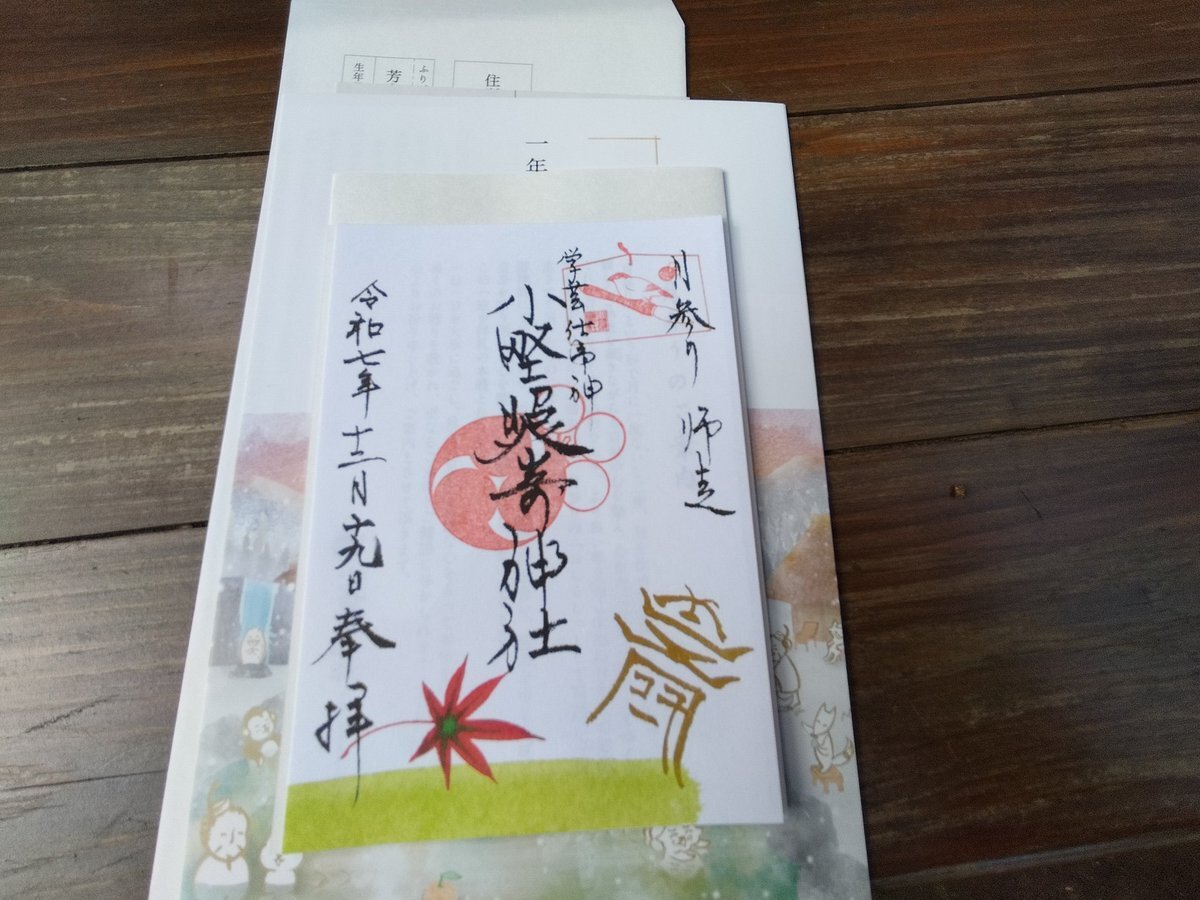 住
ふり
芳
生年
一年
月参り 師走
学芸仕事神
小野照崎神社
令和七年 十二月十九日 奉拝